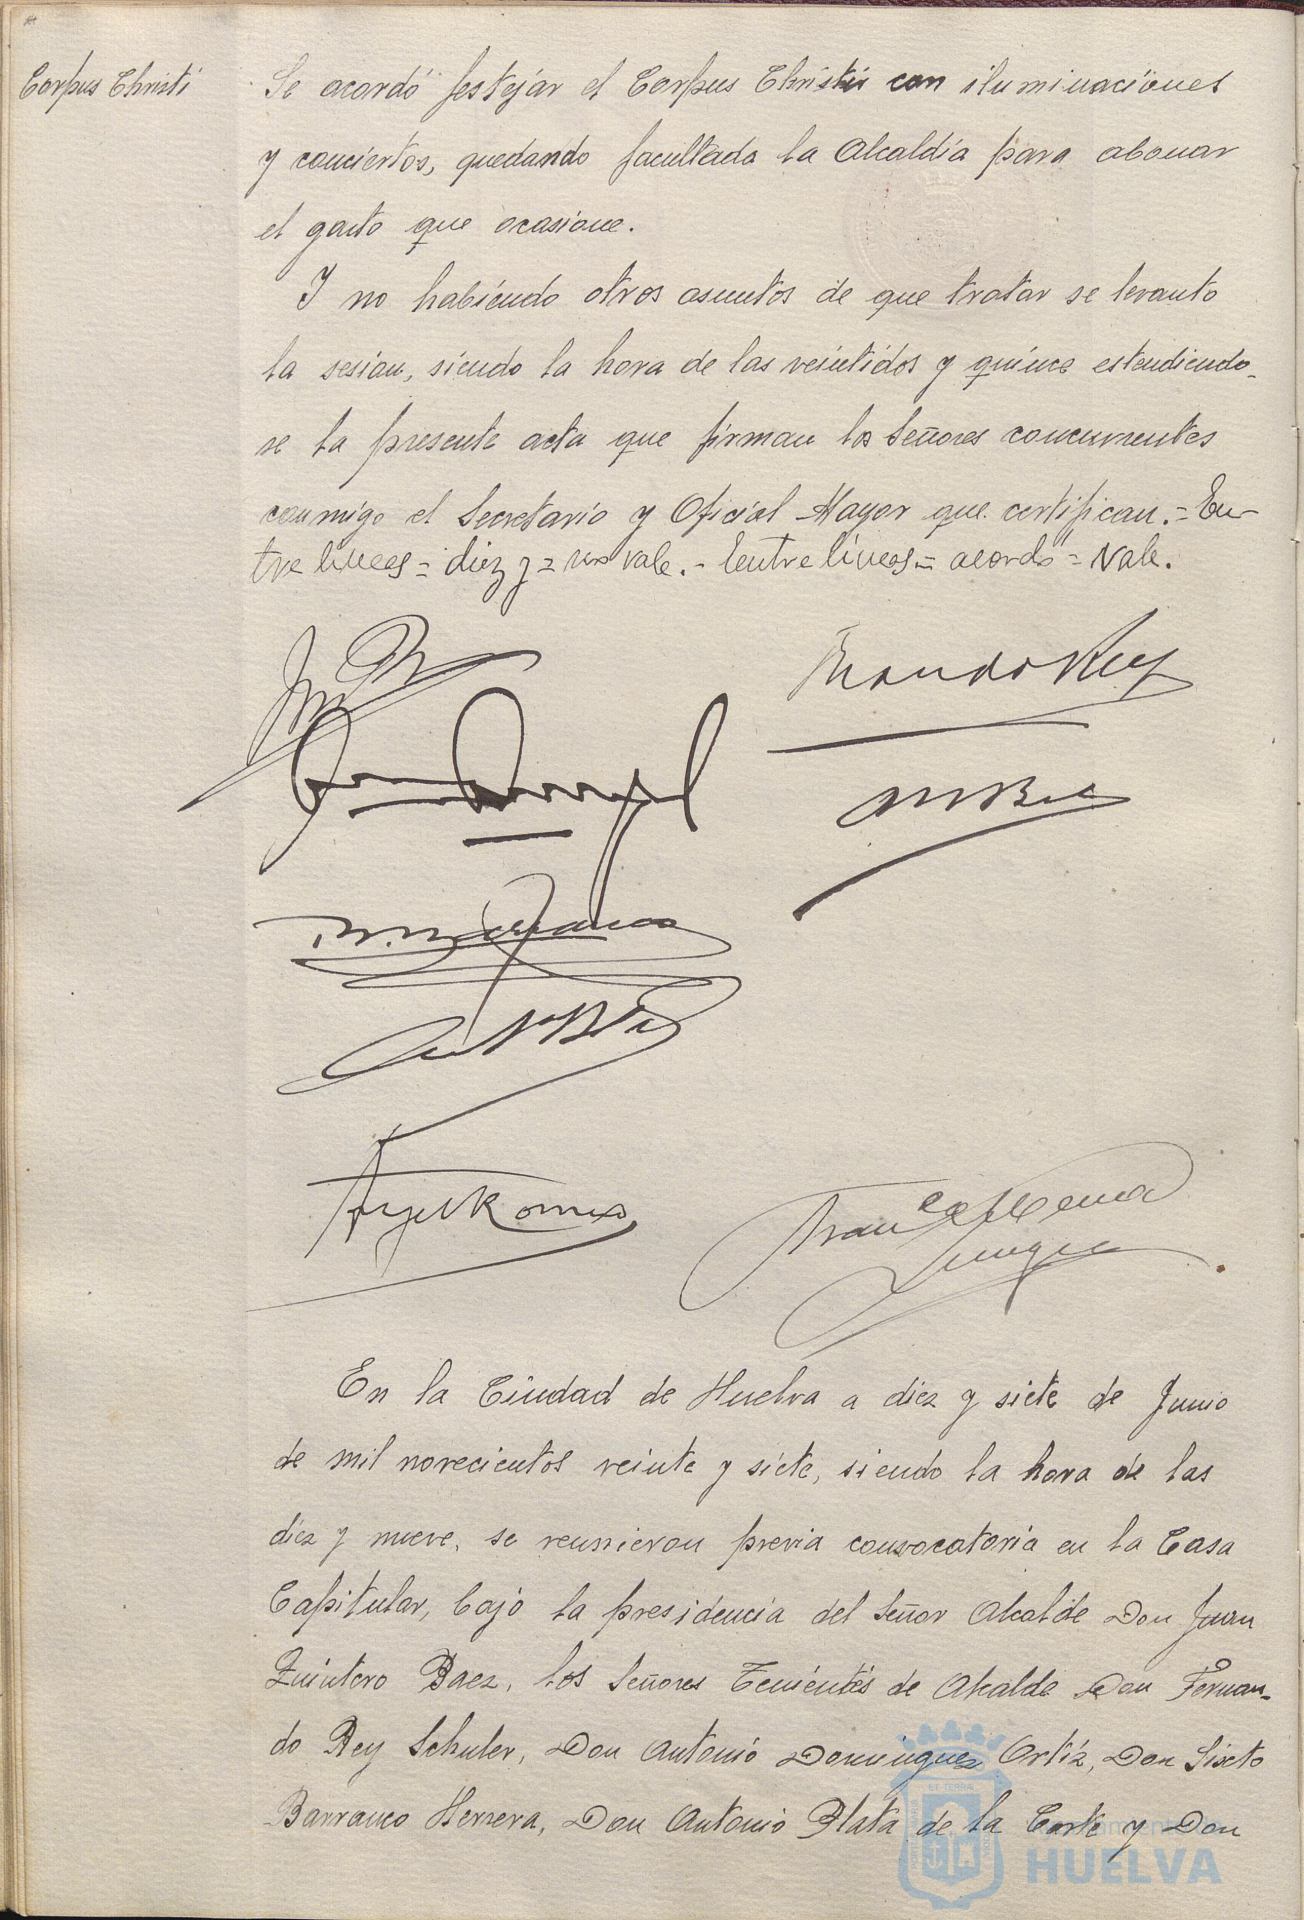 Corpus Christi
Se acordó festejar el Corpus Christis con iluminaciones
y conciertos, quedando facultada la Alcaldía para abonar
el gasto que ocasione.
Y no habiendo otros asuntos de que tratar se levanto
la sesion, siendo la hora de las veintidos y quince estendiendo-
se la presente acta que firman los Señores concurrentes
conmigo el Secretario y Oficial Mayor que certifican.= En-
tre lineas = diez y = vale.- Eentre líneas = acordó = Vale.
Fernando Rey
Angel Romero
En la Ciudad de Huelva a diez y siete de Junio
de mil novecientos veinte y siete, siendo la hora de las
diez y nueve, se reunieron previa convocatoria en la Casa
Capitular, bajo la presidencia del Señor Alcalde Don Juan
Quintero Baez, los Señores Tenientes de Alcalde Don Fernan-
do Rey Schuler, Don Antonio Dominguez Ortiz, Don Sixto
Barranco Herrera, Don Antonio Plata de la Corte y Don
HUELVA